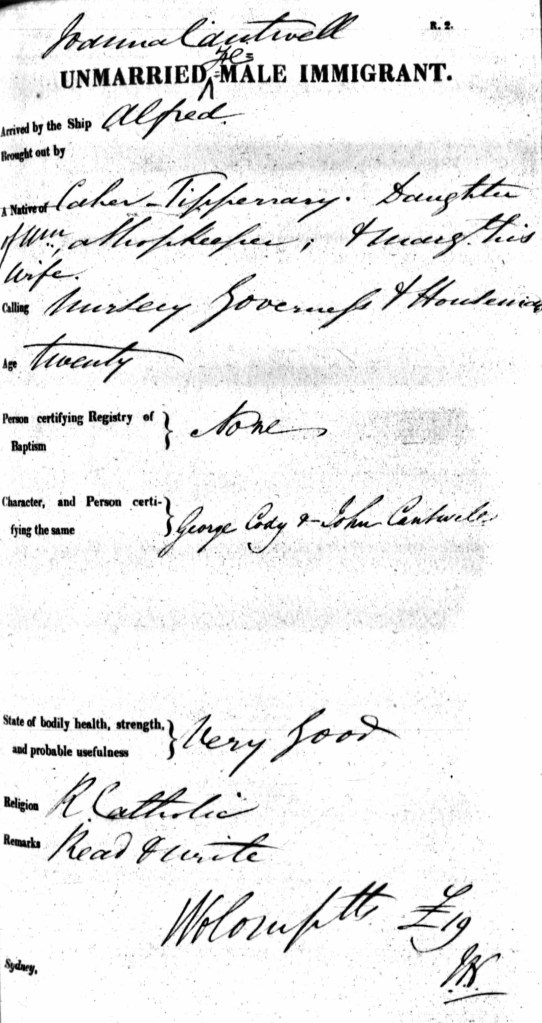 Joanna Cantwell
R. 2.
Fe=
UNMARRIED =MALE IMMIGRANT.
Arrived by the Ship Alfred
Brought out by
A Native of Caher - Tipperary. Daughter
of Wm, a Shopkeeper, & Margt. his
Wife.
Calling Nursery Governess & Housemaid
Age twenty
Person certifying Registry of
Baptism } None
Character, and Person certi-
fying the same } George Cody & John Cantwell
State of bodily health, strength,
and probable usefulness } Very Good
Religion R. Catholic
Remarks Read & write
£19
Sydney,